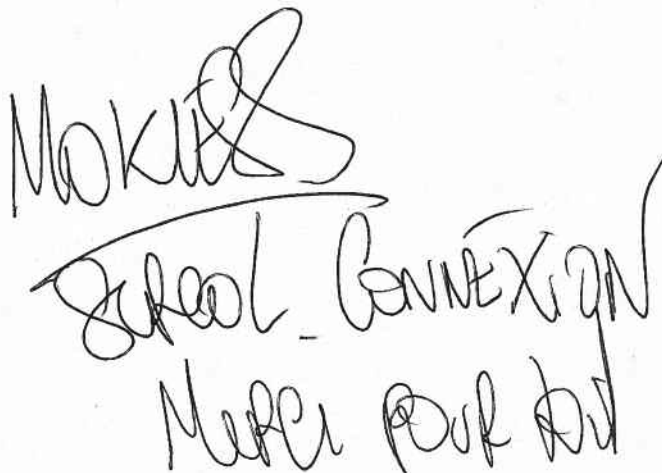 MOKLESS
SCREOL_CONNEXION
MERCI POUR tout